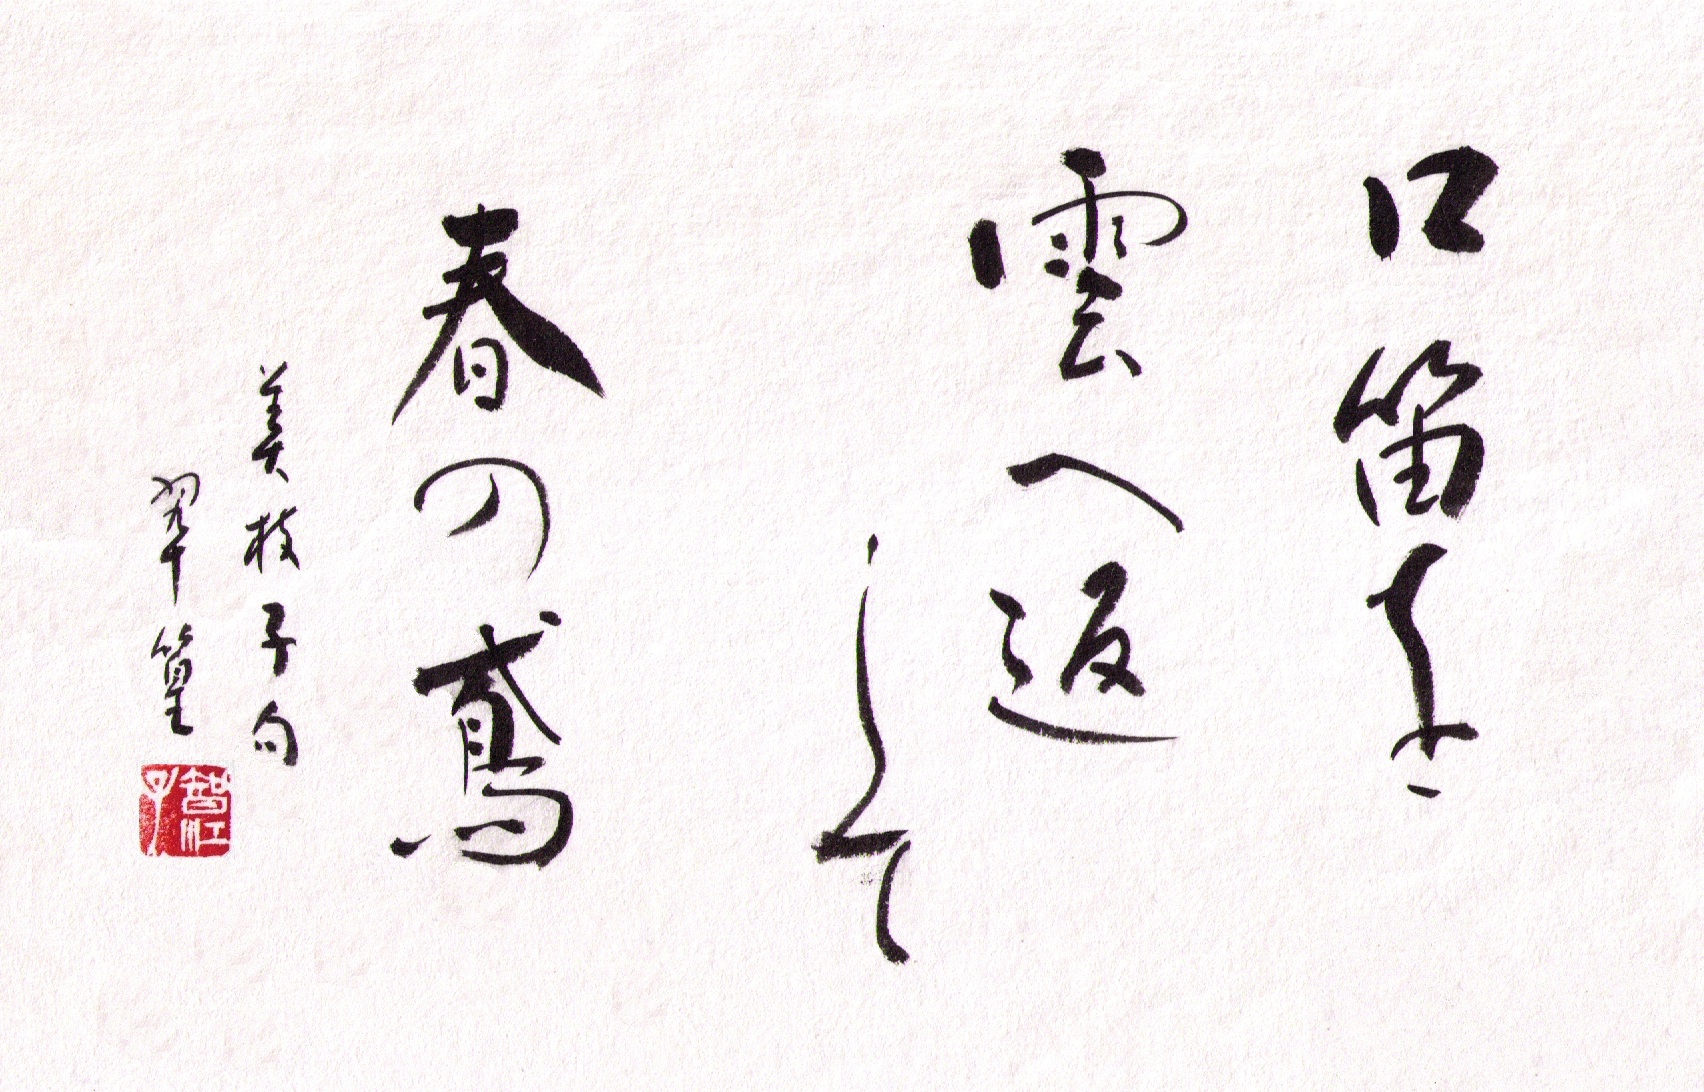 口笛を
雲へ返
して
春の鳶
美枝子句
翠篁